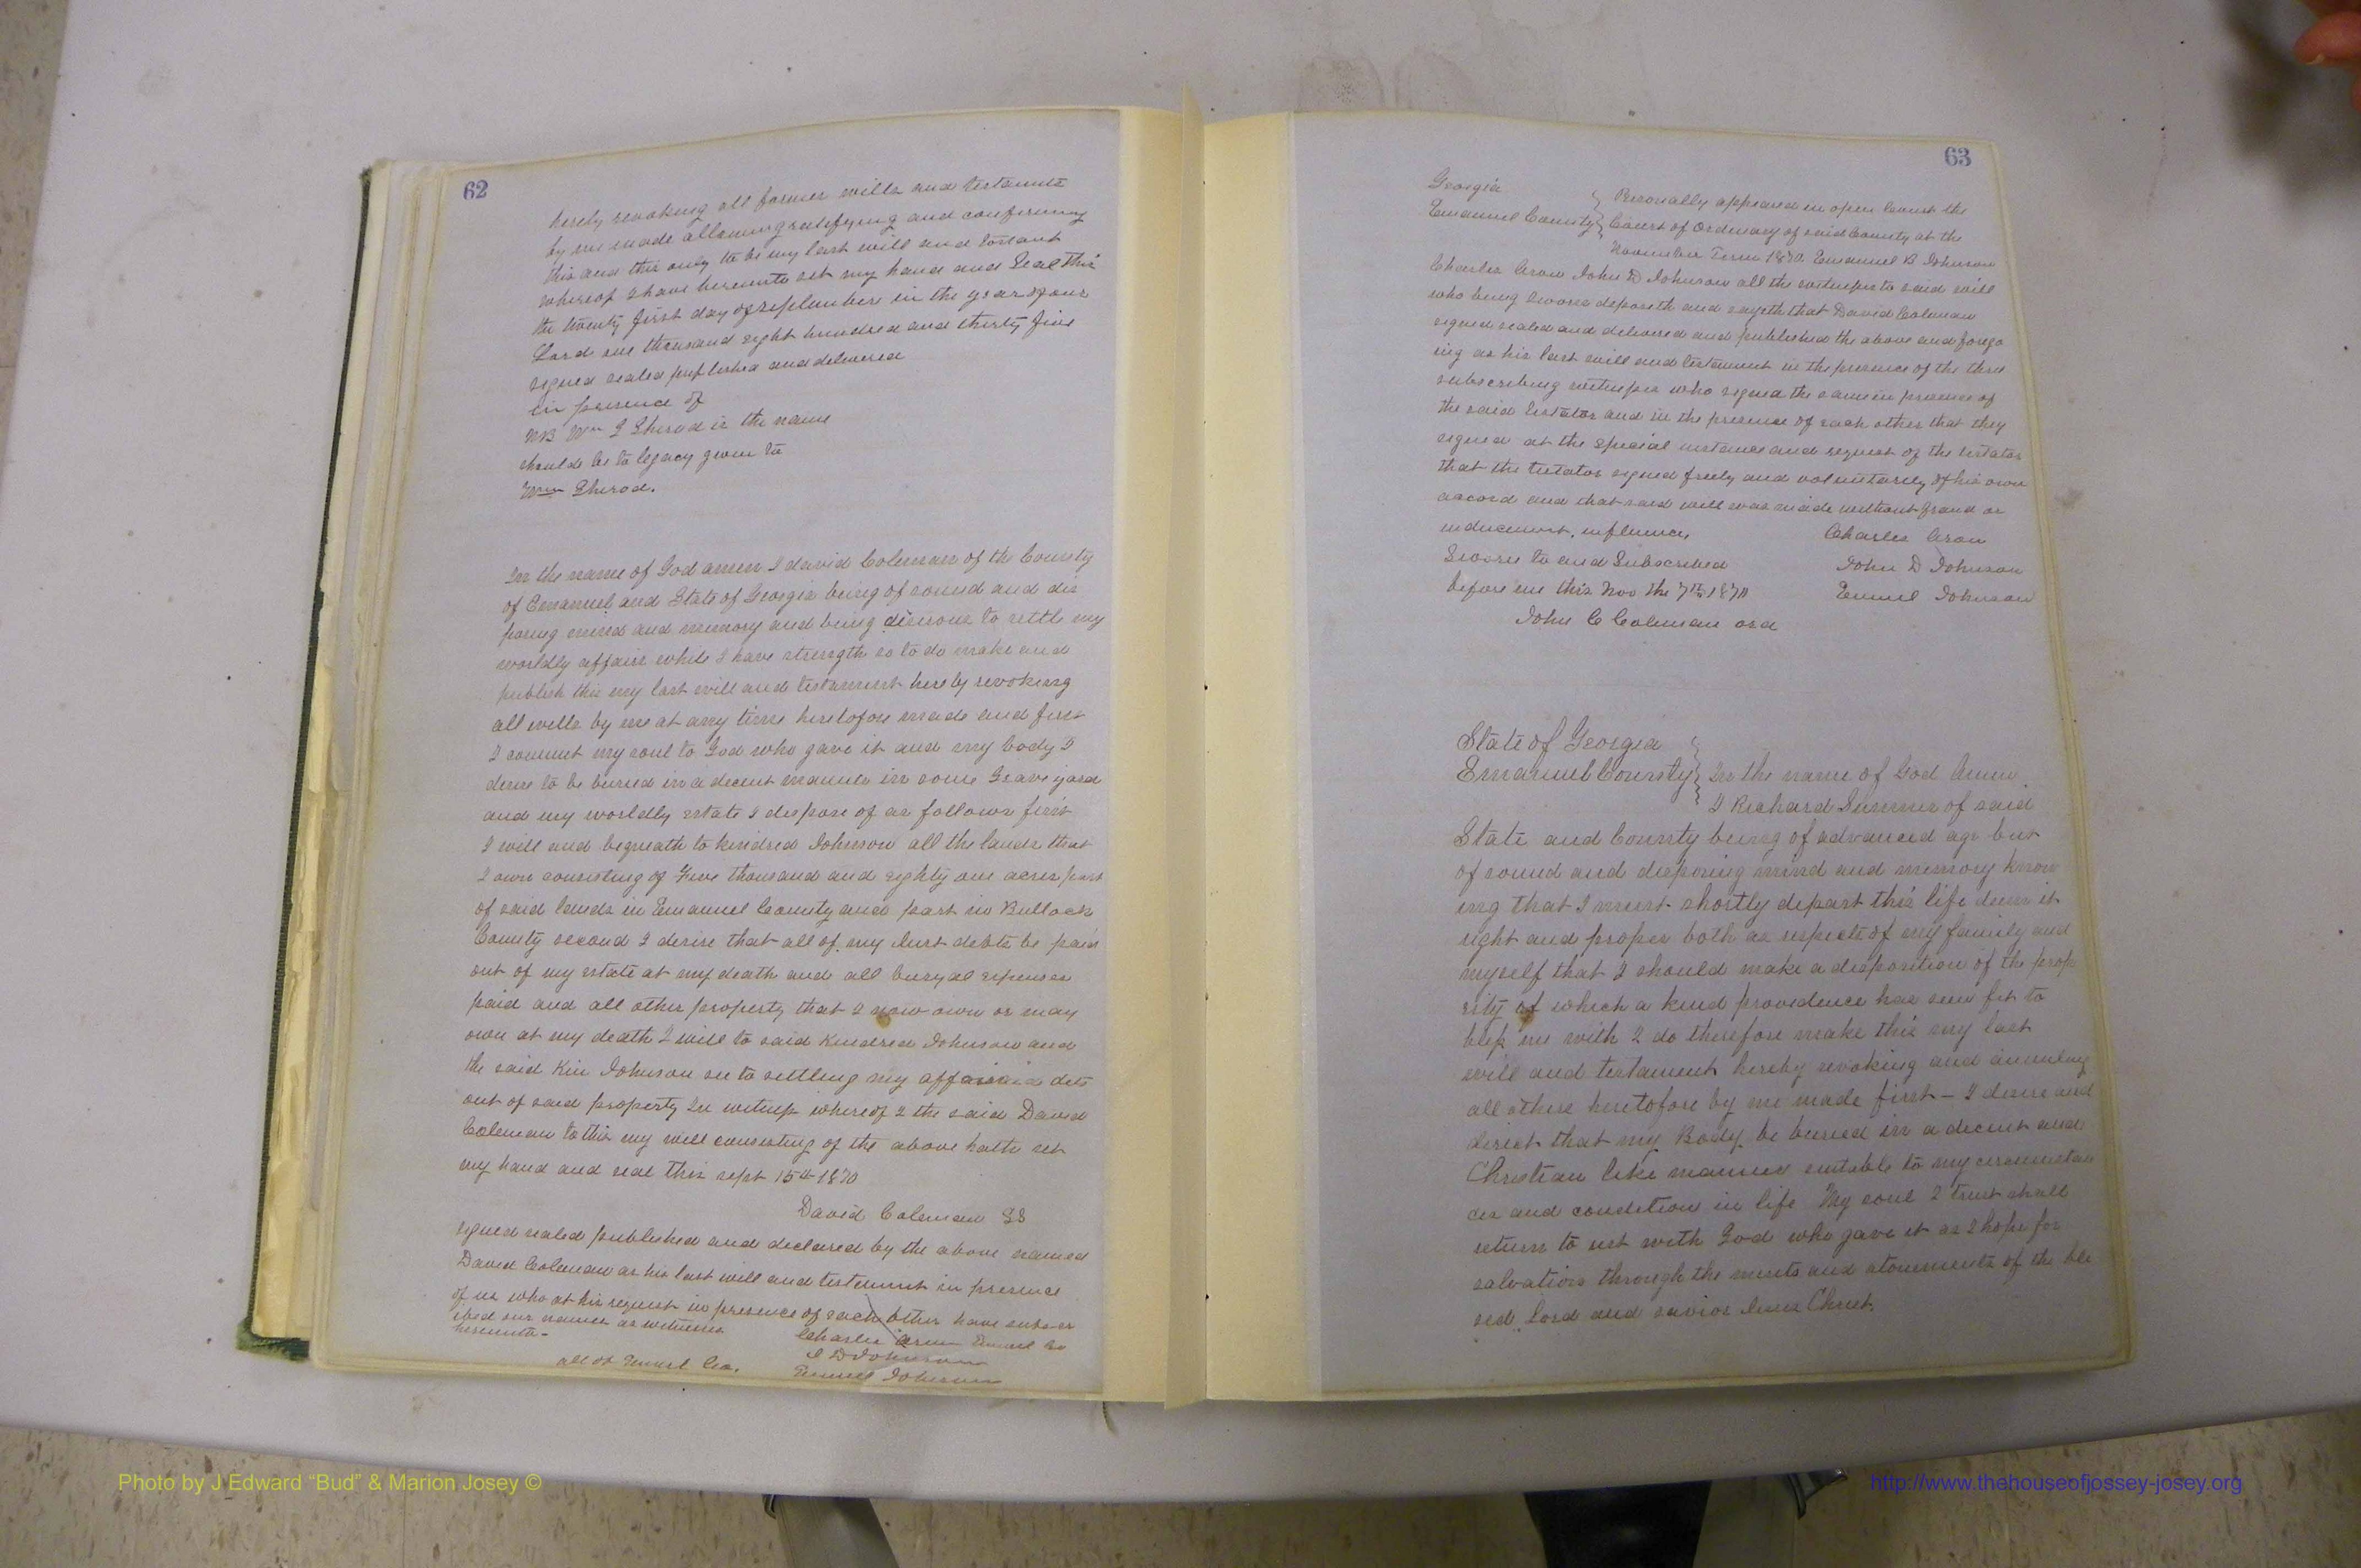 62
hereby revoking all former wills and testaments
by me made allowing ratifying and confirming
this and this only to be my last will and testant
whereof I have hereunto set my hand and Seal this
the twenty first day of septembere in the year of our
Lord one thousand eight hundred and thirty five
signed sealed published and delivered
in presence of
NB Wm I Sherod is the name
should be to legacy given to
Wm Sherod.
In the name of God amen I david Coleman of the County
of Emanuel and State of Georgia being of sound and dis
posing mind and memory and being disirous to settle my
worldly affairs while I have strength so to do make and
publish this my last will and testament hereby revoking
all wills by me at any time heretofore made and first
I commit my soul to God who gave it and my body I
desire to be buried in a decent manner in some Grave yard
and my worldly estate I dispose of as follows first
I will and bequeath to kindred Johnson all the lands that
I own consisting of Five thousand and eighty one acres part
of said lands in Emanuel County and part in Bullock
County second I desire that all of my Just debts be paid
out of my estate at my death and all buryal expenses
paid and all other property that I now own or may
own at my death I will to said Kindred Johnson and
the said Kin Johnson see to settling my affairs
out of said property In witness whereof I the said David
Coleman to this my will consisting of the above hath set
my hand and seal this sept 15th 1870
David Coleman LS
signed sealed published and declared by the above named
David Coleman as his last will and testament in presence
of us who at his request in presence of each other have subscr
ibed our names as witnesses
hereunto- Charles Aron Emuel Co
J D Johnson
all of Emuel Co. Emuel Johnson
63
Georgia
Emanuel County Personally appeared in open Court the
Court of Ordinary of said County at the
November Term 1870 Emanuel B Johnson
Charles Aron John D Johnson all the witnesses to said will
who being sworn deposeth and sayeth that David Coleman
signed sealed and delivered and published the above and forego
ing as his last will and testament in the presence of the three
subscribing witnesses who signed the same in presence of
the said testator and in the presence of each other that they
signed at the special instance and request of the testator
that the testator signed freely and voluntarily of his own
accord and that said will was made without fraud or
inducement, influence, Charles Aron
Sworn to and Subscribed John D Johnson
before me this Nov the 7th 1870 Emuel Johnson
John C Coleman ord
State of Georgia
Emanuel County In the name of God Amen
I Richard Sumner of said
State and County being of advanced age but
of sound and disposing mind and memory know
ing that I must shortly depart this life deem it
right and proper both as respects of my family and
myself that I should make a disposition of the prop
erty of which a kind providence has seen fit to
bless me with I do therefore make this my last
will and testament hereby revoking and annuling
all others heretofore by me made first - I desire and
direct that my Body be buried in a decent and
Christian like manner suitable to my circumstan
ces and condition in life My soul I trust shall
return to rest with God who gave it as I hope for
salvation through the merits and atonements of the ble
sed Lord and savior Jesus Christ.
Photo by J Edward “Bud” & Marion Josey ©
http://www.thehouseofjossey-josey.org